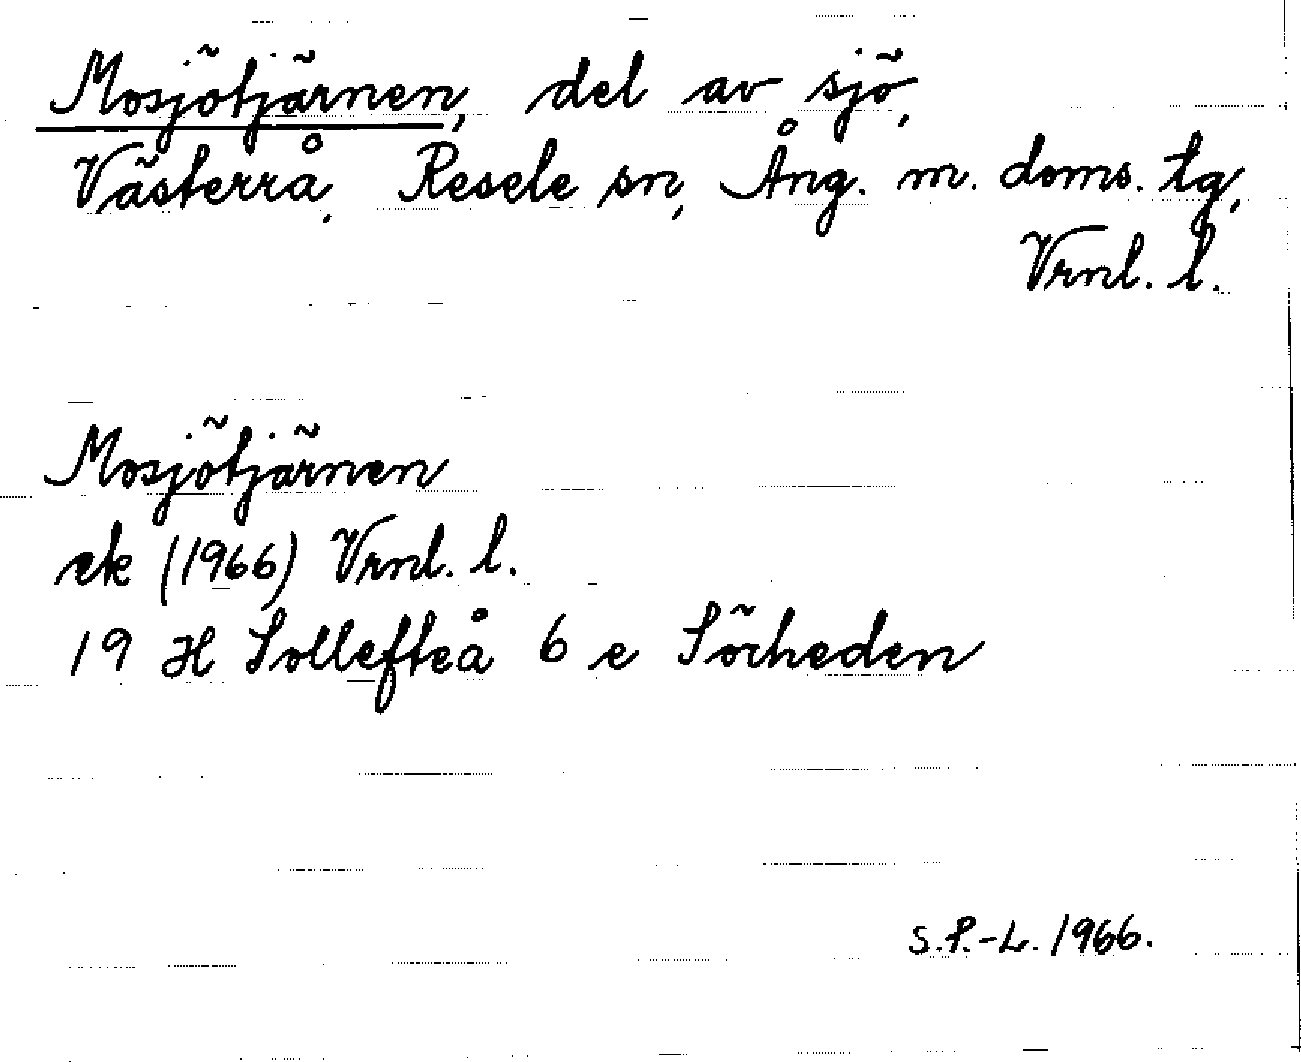 Mosjötjärnen, del av sjö,
Västerrå, Resele sn, Ång. m. doms. tg,
Vrnl. l.
Mosjötjärnen
ek (1966) Vrnl. l.
19 H Sollefteå 6 e Sörheden
S.P.-L. 1966.